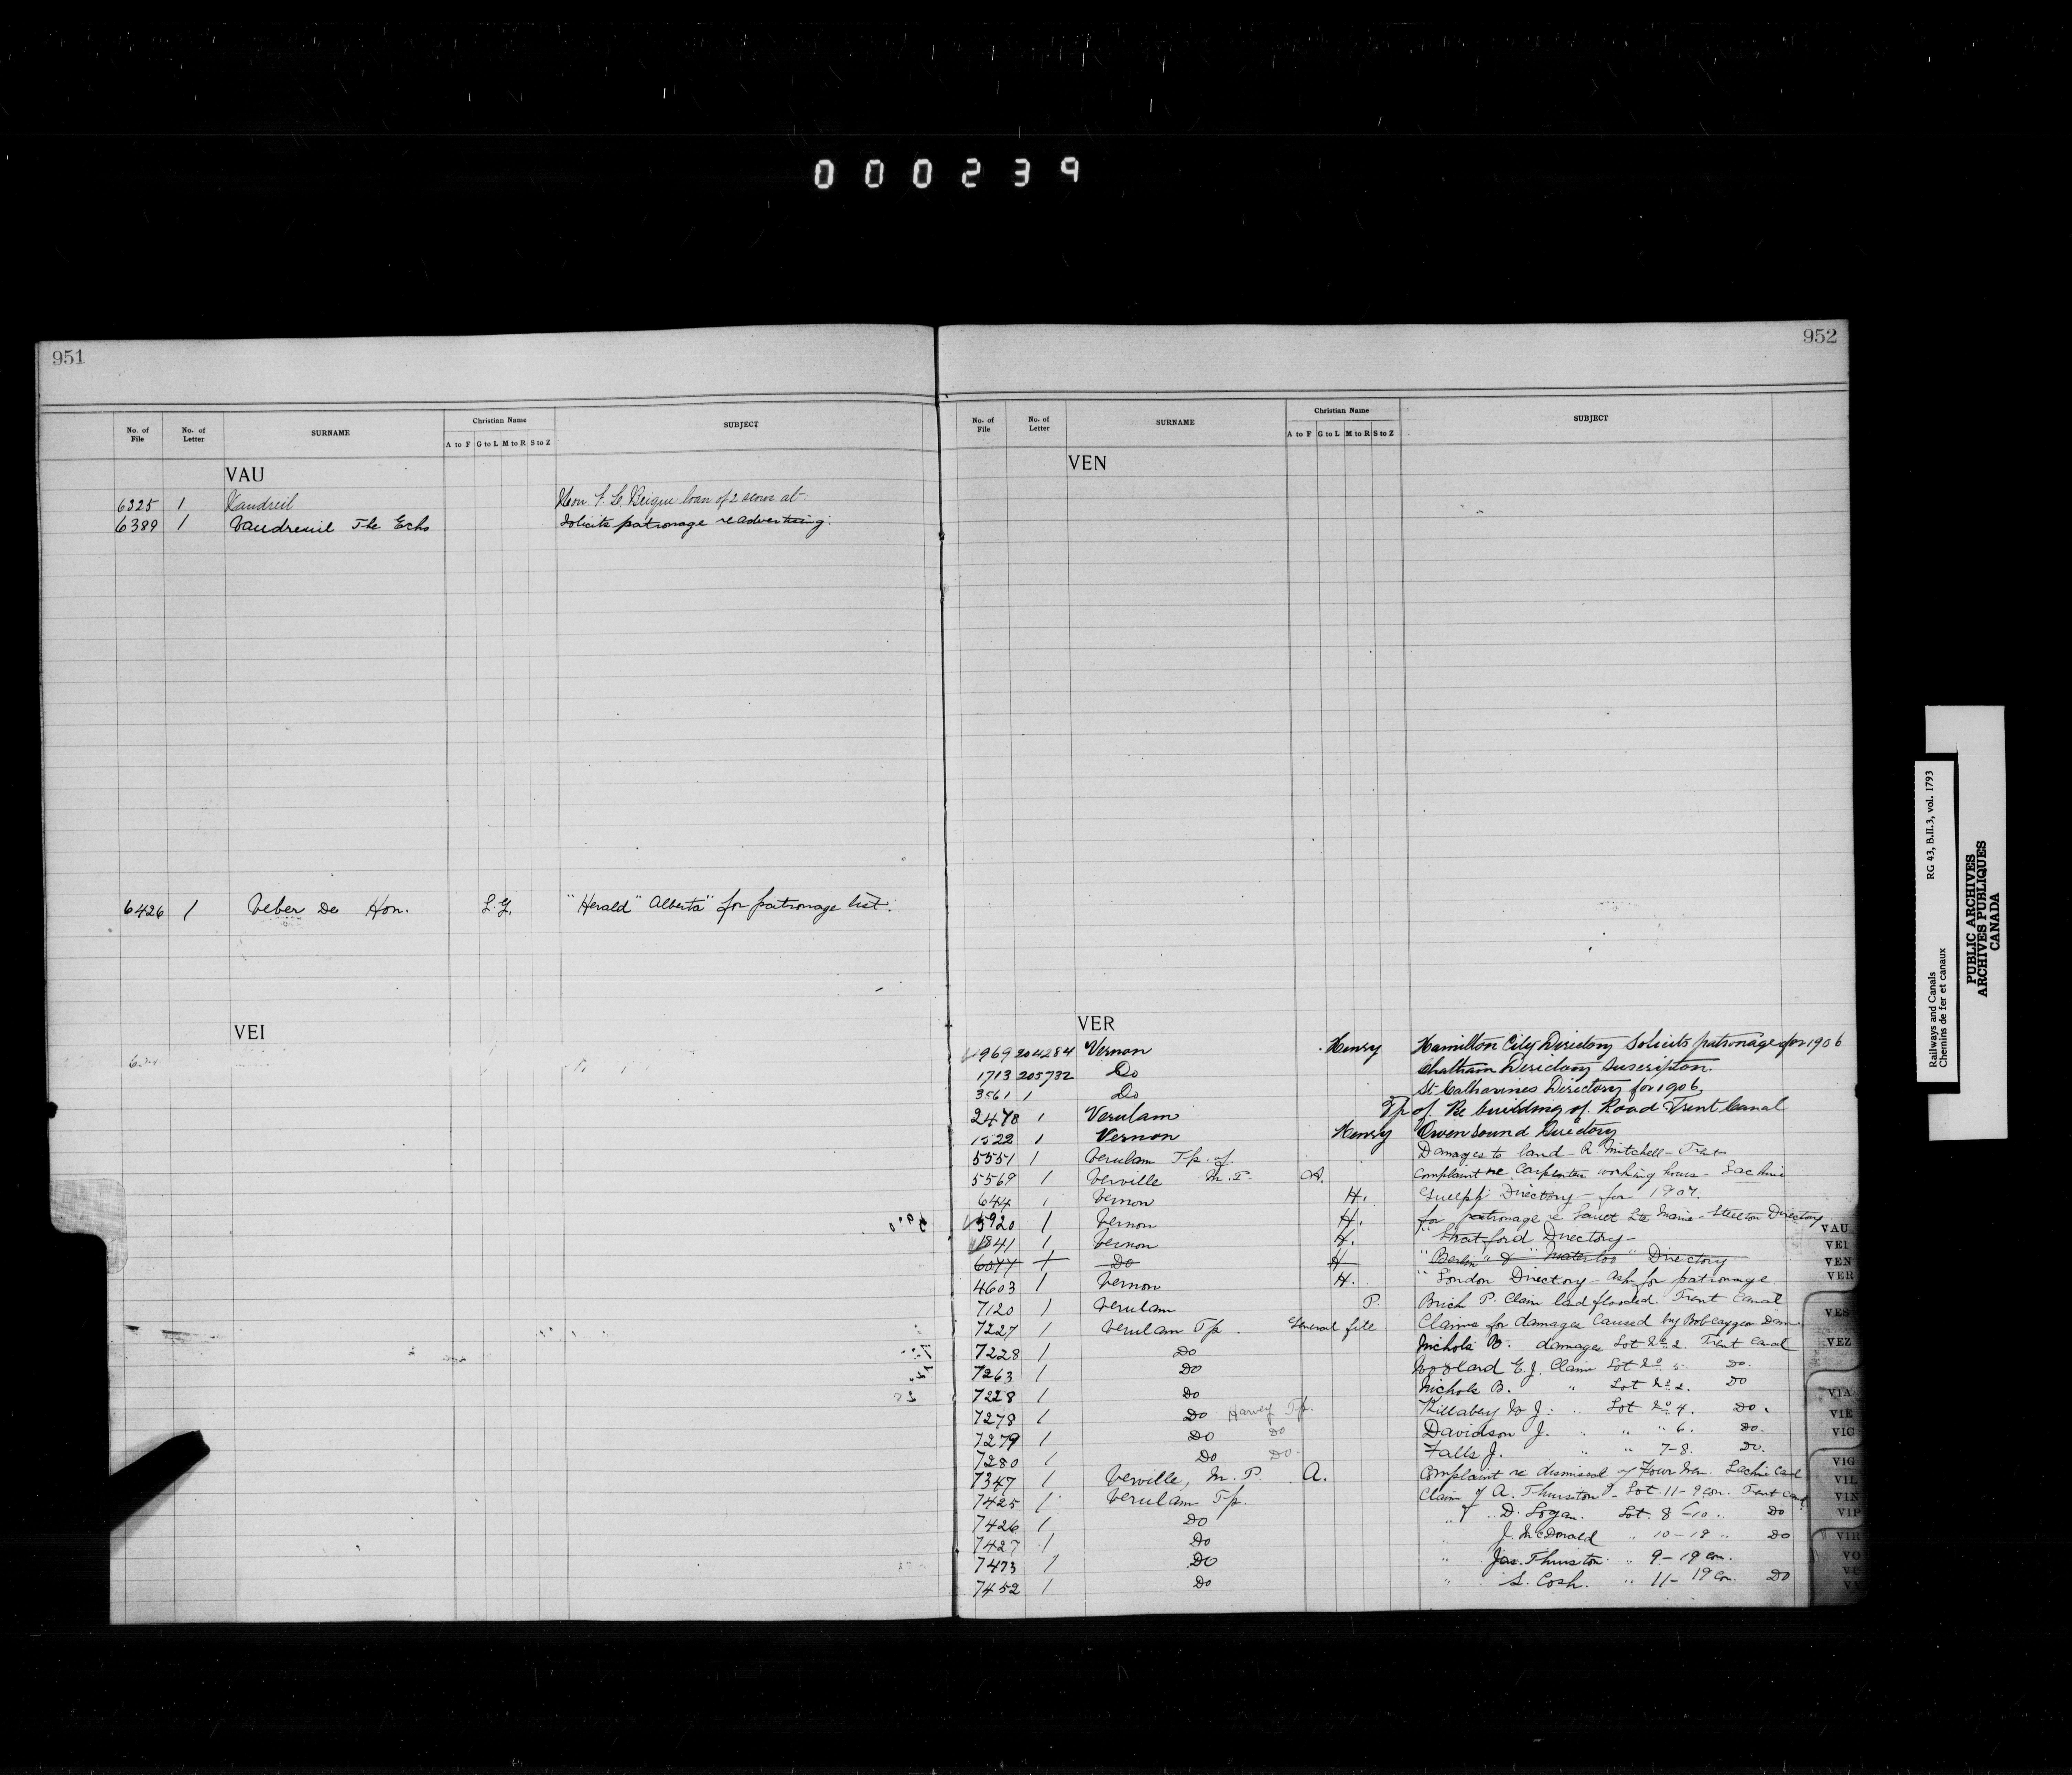 000239
951
No. of File No. of Letter SURNAME Christian Name A to F G to L M to R S to Z SUBJECT
VAU
6325 1 Vaudreuil Hon F. L. Beique loan of 2 scows at
6389 1 Vaudreuil The Echo Solicits patronage re advertising.
6426 1 Veber De Hon. L.G. "Herald" Alberta" for patronage list.
VEI
952
No. of File No. of Letter SURNAME Christian Name A to F G to L M to R S to Z SUBJECT
VEN
VER
1969 204284 Vernon Henry Hamilton City Directory Solicits patronage for 1906
1713 205732 Do Chatham Directory Suscription.
3561 1 Do St Catharines Directory for 1906.
2478 1 Verulam Tp of. Re building of Road Trent Canal
1522 1 Vernon Henry Owen Sound Directory
5551 1 Verulam Tp. of. Damages to land - R. Mitchell - Trent
5569 1 Verville M.P. A. Complaint re Carpenters working hours - Lachine
644 1 Vernon H. Guelph Directory - for 1907.
5920 1 Vernon H. for patronage re Sault Ste Marie - Steelton Directory
1841 1 Vernon H. " Stratford Directory -
6044 1 Do H " Berlin" & "Waterloo" Directory
4603 1 Vernon H. " London Directory - Ask for patronage.
7120 1 Verulam P. Brich P. Claim land flooded. Trent Canal
7227 1 Verulam Tp. General file Claims for damages Caused by Bobcaygeon Dam
7228 1 Do Nichols B. damages Lot No. 2. Trent Canal
7263 1 Do E.J. Claim Lot No 5 Do.
7228 1 Do Nichols B. " Lot No. 2. Do
7278 1 Do Harvey Tp. Killabey W J. " Lot No 4. Do.
7279 1 Do Do Davidson J. " " " 6. Do.
7280 1 Do Do. Falls J. " " 7-8. Do.
7347 1 Verville, M.P. A. Complaint re dismissal of Four Men. Lachine Canal
7425 1 Verulam Tp. Claim of A. Thurston - Lot 11-9 con. Trent Canal
7426 1 Do " of " D. Logan. Lot. 8-10 " Do
7427 1 Do " J. McDonald " 10-18 " Do
7473 1 Do " Jas. Thurston " 9-19 con.
7452 1 Do " S. Cosh. " 11-19 con. Do
VAU
VEI
VEN
VER
VES
VEZ
VIA
VIE
VIG
VIL
VIN
VIP
VIR
VO
Railways and Canals RG 43, B.II.3, vol. 1793
Chemins de fer et canaux
PUBLIC ARCHIVES
ARCHIVES PUBLIQUES
CANADA